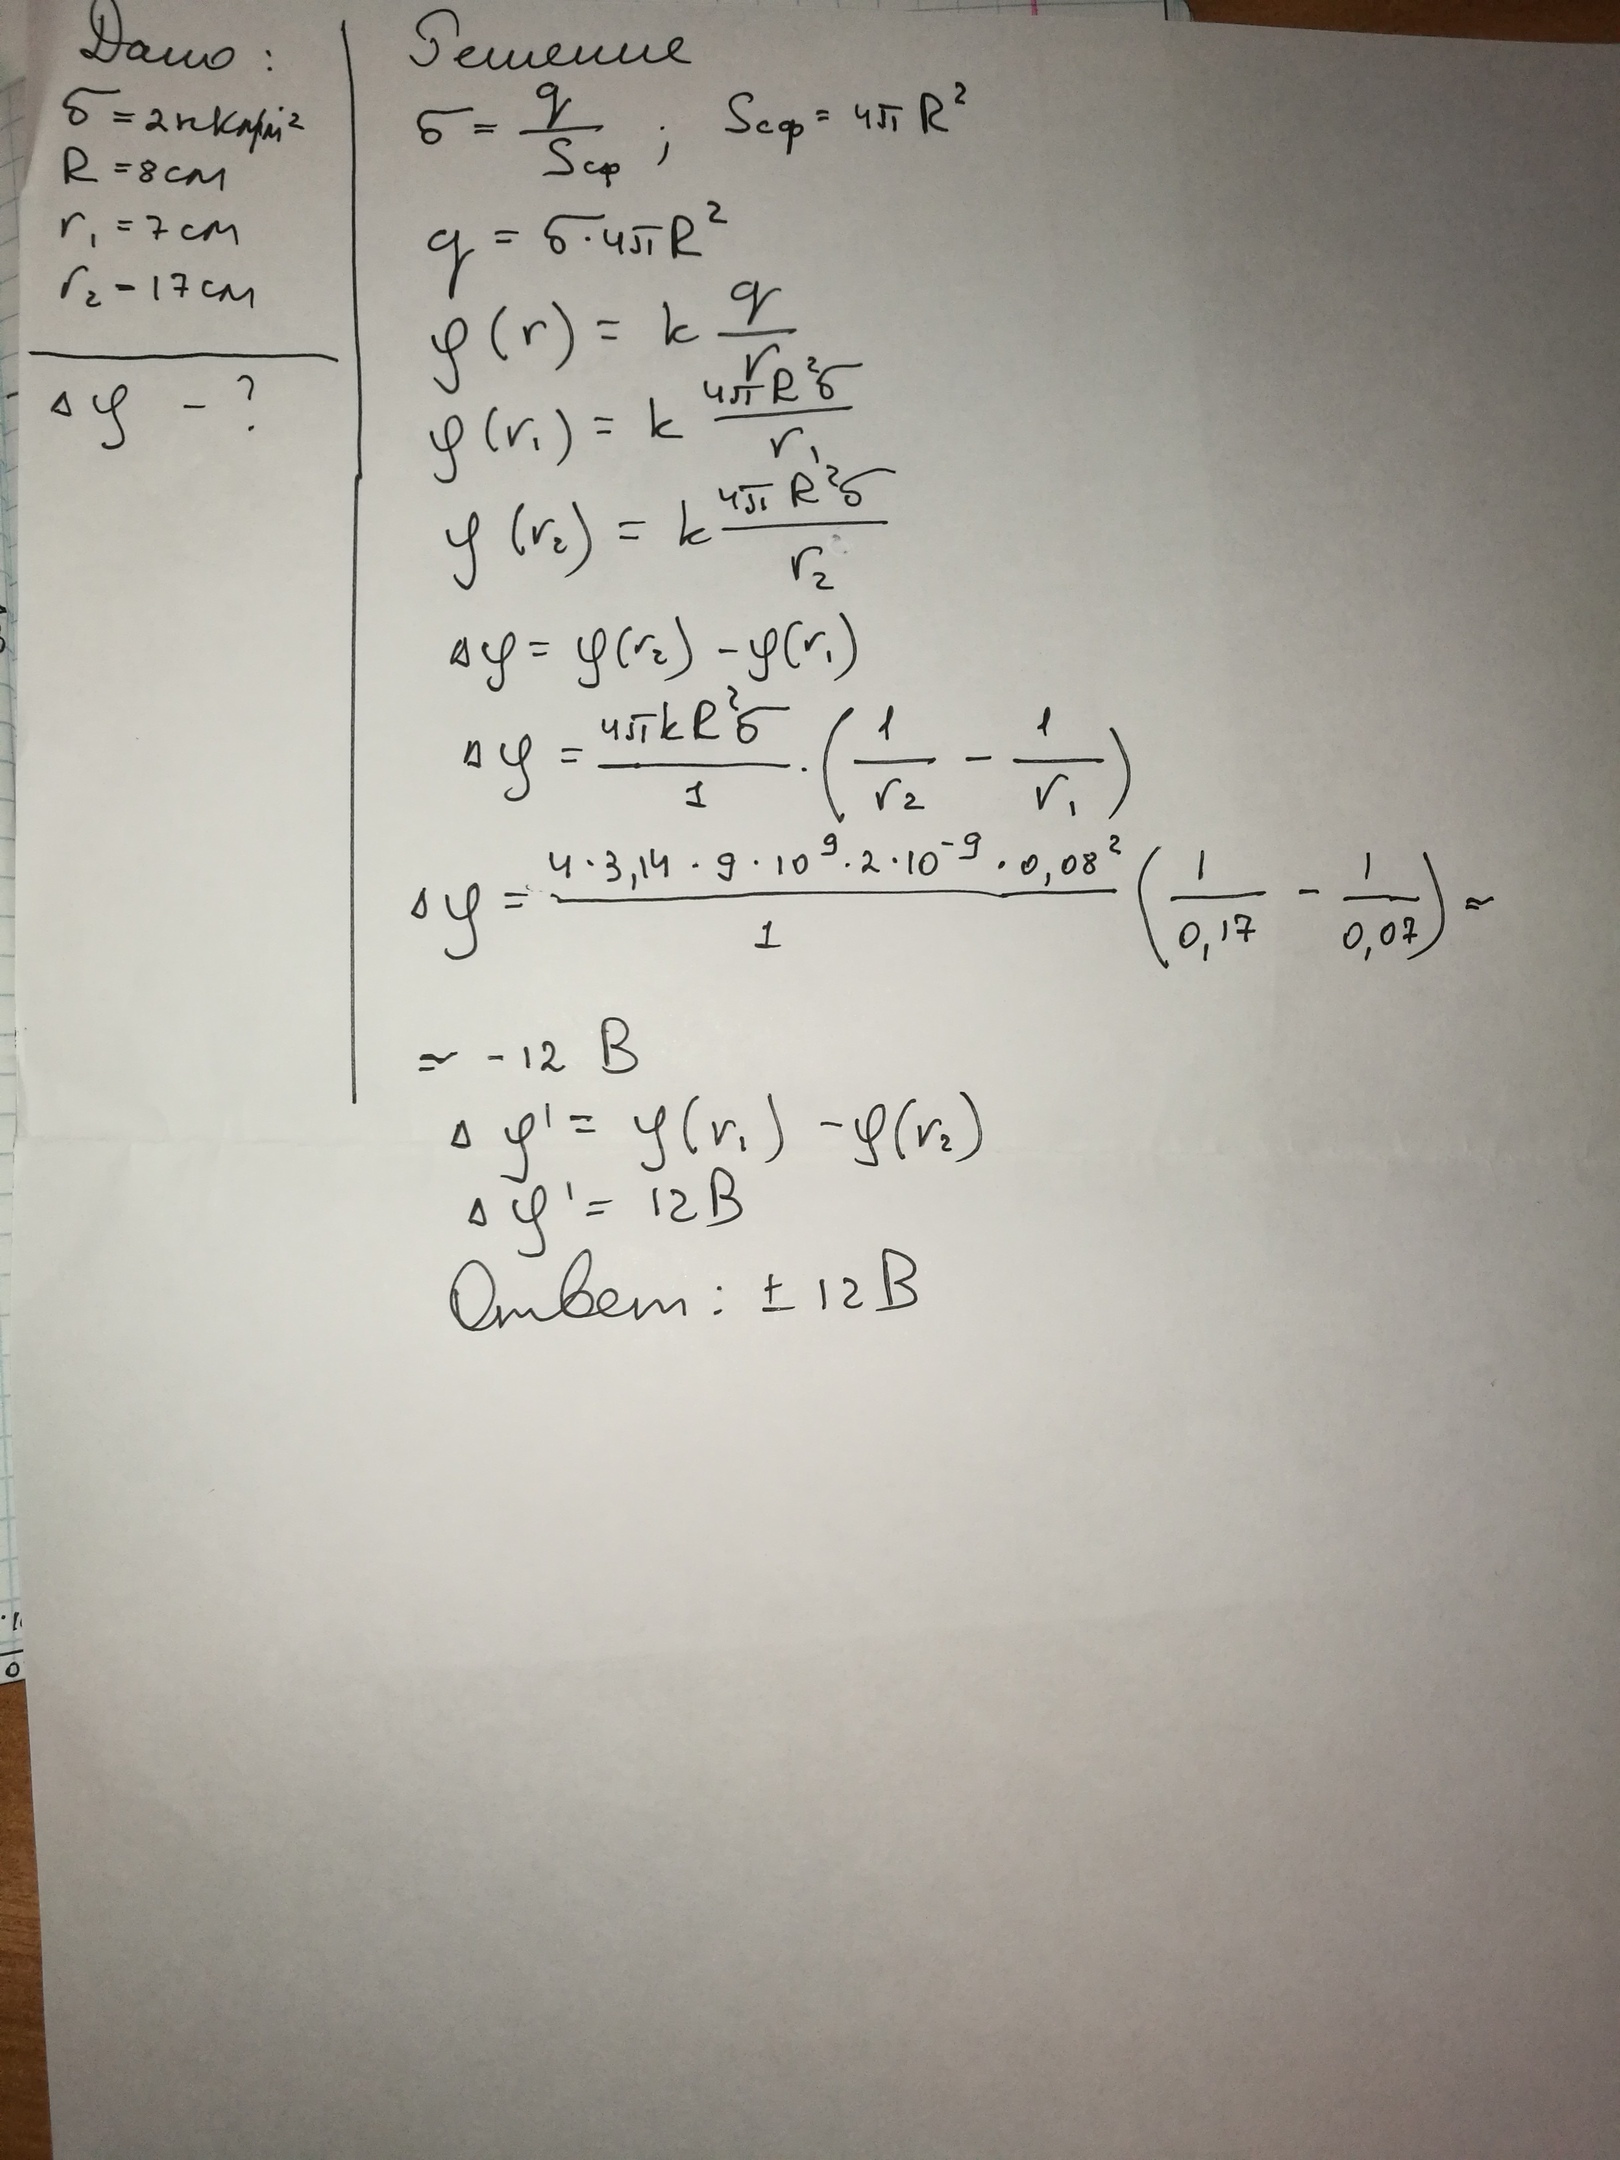 Дано:
σ = 2нКл/м²
R = 8см
r₁ = 7см
r₂ - 17см
Δφ - ?
Решение
σ = q/Sсф ; Sсф = 4πR²
q = σ·4πR²
φ(r) = k q/r
φ(r₁) = k 4πR²σ/r₁
φ(r₂) = k 4πR²σ/r₂
Δφ = φ(r₂) - φ(r₁)
Δφ = 4πkR²σ/1 · (1/r₂ - 1/r₁)
Δφ = 4·3,14·9·10⁹·2·10⁻⁹·0,08²/1 (1/0,17 - 1/0,07) ≈
≈ -12 В
Δφ' = φ(r₁) - φ(r₂)
Δφ' = 12В
Ответ: ± 12В